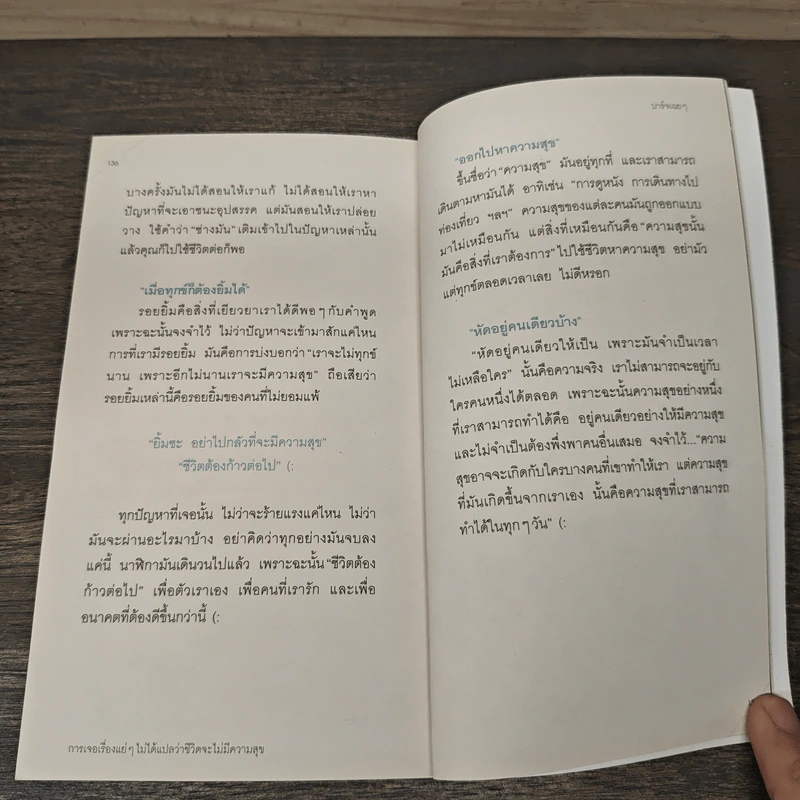 136
บางครั้งมันไม่ได้สอนให้เราแก้ ไม่ได้สอนให้เราหา
ปัญหาที่จะเอาชนะอุปสรรค แต่มันสอนให้เราปล่อย
วาง ใช้คำว่า "ช่างมัน" เติมเข้าไปในปัญหาเหล่านั้น
แล้วคุณก็ไปใช้ชีวิตต่อก็พอ
"เมื่อทุกข์ก็ต้องยิ้มได้"
รอยยิ้มคือสิ่งที่เยียวยาเราได้ดีพอๆ กับคำพูด
เพราะฉะนั้นจงจำไว้ ไม่ว่าปัญหาจะเข้ามาสักแค่ไหน
การที่เรามีรอยยิ้ม มันคือการบ่งบอกว่า "เราจะไม่ทุกข์
นาน เพราะอีกไม่นานเราจะมีความสุข" ถือเสียว่า
รอยยิ้มเหล่านี้คือรอยยิ้มของคนที่ไม่ยอมแพ้
"ยิ้มซะ อย่าไปกลัวที่จะมีความสุข"
"ชีวิตต้องก้าวต่อไป" (:
ทุกปัญหาที่เจอนั้น ไม่ว่าจะร้ายแรงแค่ไหน ไม่ว่า
มันจะผ่านอะไรมาบ้าง อย่าคิดว่าทุกอย่างมันจบลง
แค่นี้ นาฬิกามันเดินวนไปแล้ว เพราะฉะนั้น "ชีวิตต้อง
ก้าวต่อไป" เพื่อตัวเราเอง เพื่อคนที่เรารัก และเพื่อ
อนาคตที่ต้องดีขึ้นกว่านี้ (:
การเจอเรื่องแย่ๆ ไม่ได้แปลว่าชีวิตจะไม่มีความสุข
"ออกไปหาความสุข"
ขึ้นชื่อว่า "ความสุข" มันอยู่ทุกที่ และเราสามารถ
เดินตามหามันได้ อาทิเช่น "การดูหนัง การเดินทางไป
ท่องเที่ยว ฯลฯ" ความสุขของแต่ละคนมันถูกออกแบบ
มาไม่เหมือนกัน แต่สิ่งที่เหมือนกันคือ "ความสุขนั้น
มันคือสิ่งที่เราต้องการ" ไปใช้ชีวิตหาความสุข อย่ามัว
แต่ทุกข์ตลอดเวลาเลย ไม่ดีหรอก
"หัดอยู่คนเดียวบ้าง"
"หัดอยู่คนเดียวให้เป็น เพราะมันจำเป็นเวลา
ไม่เหลือใคร" นั้นคือความจริง เราไม่สามารถจะอยู่กับ
ใครคนหนึ่งได้ตลอด เพราะฉะนั้นความสุขอย่างหนึ่ง
ที่เราสามารถทำได้คือ อยู่คนเดียวอย่างให้มีความสุข
และไม่จำเป็นต้องพึ่งพาคนอื่นเสมอ จงจำไว้..."ความ
สุขอาจจะเกิดกับใครบางคนที่เขาทำให้เรา แต่ความสุข
ที่มันเกิดขึ้นจากเราเอง นั้นคือความสุขที่เราสามารถ
ทำได้ในทุกๆ วัน" (: